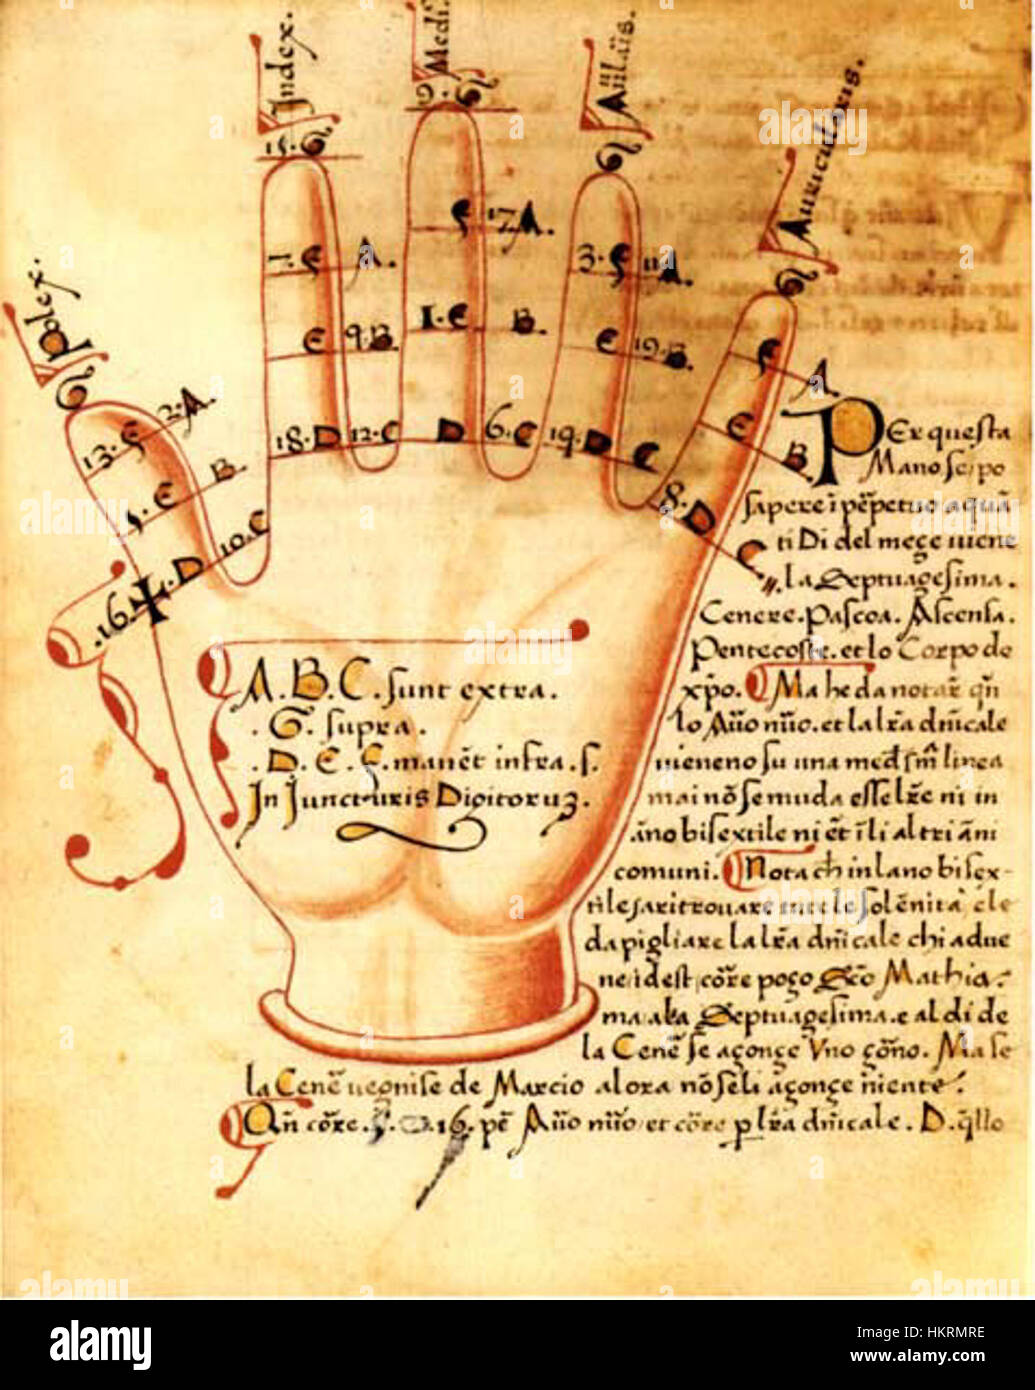 Index.
Medi.
Auricularis.
polex.
15. G
9. G
G
G
G
F 17 A.
1. F A.
3. F 11 A
F A
1. E B.
E 9. B.
E 19. B.
E B.
13. F 2. A.
5. E B
18. D 12. C D 6. C 19. D C
8. D C
.16. D 10. C
A. B. C. sunt extra.
. G. supra.
. D. E. F. manēt infra. s.
In Juncturis Digitoruz.
PEr questa
Mano se po
sapere ī ppetuo a quā
ti Di del mese viene
la Septuagesima.
Cenere. Pascoa. Ascensa.
Pentecoste. et lo Corpo de
xpo. Ma he da notar qn
lo Auo nuo. et la lra dnicale
vieneno su una med sm linea
mai nō se muda esse lre ni in
ano bisextile ni et i li altri ani
comuni. Nota ch in lano bisex-
tile sa ritrovare tute le solenita cle
da pigliare la lra dnicale chi a due
ne idest core poco Sco Mathia.
ma a la Septuagesima. e al di de
la Cene se agonge Uno gono. Ma se
la Cene vegnise de Marcio alora nō se li agonge niente.
Qn core. 16. pe Auo nuo et core p lra dnicale. D. qllo
alamy
Image ID: HKRMRE
www.alamy.com